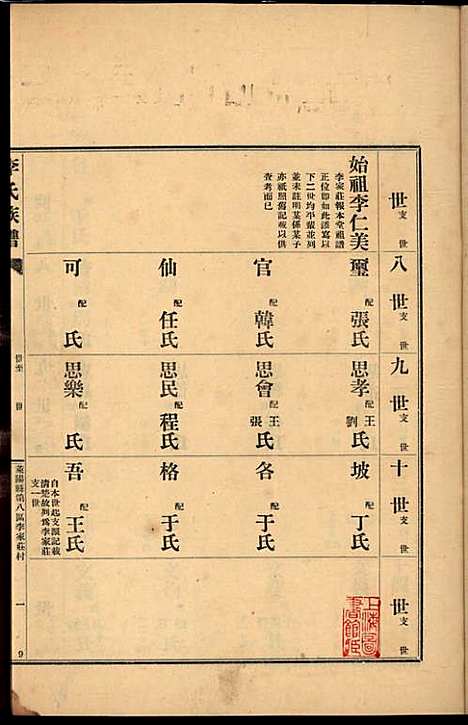 世 支 世
始祖李仁美
李家莊報本堂祖譜
正位即如此謹寫以
下二世均平輩並列
並未註明某係某子
亦祇照舊記載以供
查考而已
八世 支 世
璽 配 張氏
官 配 韓氏
仙 配 任氏
可 配 氏
九世 支 世
思孝 配 王劉氏
思會 配 王張氏
思民 配 程氏
思樂 配 氏
十世 支 世
坡 配 丁氏
各 配 于氏
格 配 于氏
吾 配 王氏
自本世起支派記載
清楚故列為李家莊
支一世
世 支 世
上海圖書館藏
李氏族譜
世至 世
萊陽縣第八區李家莊村
一
9